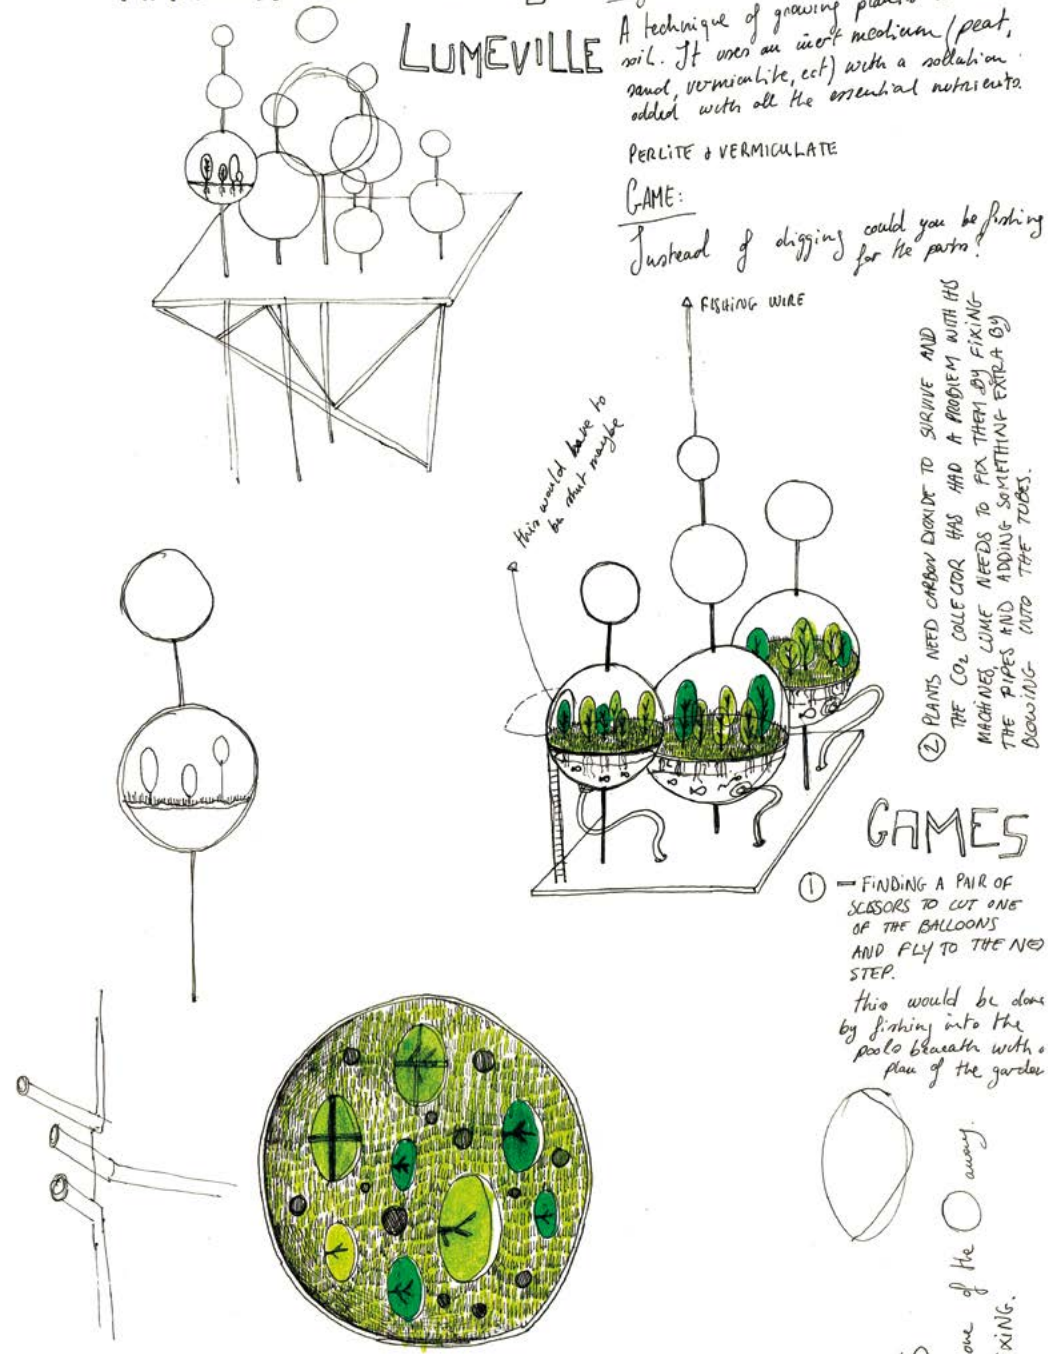 LUMEVILLE
A technique of growing
soil. It uses an inert medium (peat,
sand, vermiculite, ect) with a sollution
added with all the essential nutrients.
PERLITE & VERMICULATE
GAME:
Instead of digging could you be fishing
for the parts?
FISHING WIRE
this would have to
be shut maybe
② PLANTS NEED CARBON DIOXIDE TO SURVIVE AND
THE CO2 COLLECTOR HAS HAD A PROBLEM WITH HIS
MACHINES, LUME NEEDS TO FIX THEM BY FIXING
THE PIPES AND ADDING SOMETHING EXTRA BY
BLOWING INTO THE TUBES.
GAMES
① - FINDING A PAIR OF
SCISSORS TO CUT ONE
OF THE BALLOONS
AND FLY TO THE
STEP.
this would be done
by fishing into the
pools beneath with
plan of the garden
one of the away.